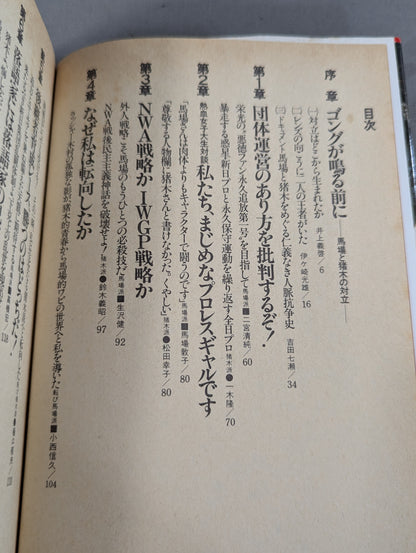 目次
序 章 ゴングが鳴る前に――馬場と猪木の対立――
(一)対立はどこから生まれたか 井上義啓/6
(二)レンズの向こうに二人の王者がいた 伊ケ崎光雄/16
(三)ドキュメント馬場と猪木をめぐる仁義なき人脈抗争史 吉田七瀬/34
第1章 団体運営のあり方を批判するぞ!
栄光の“悪徳ファン永久追放第一号”を目指して 馬場派■二宮清純/60
暴走する惑星新日プロと永久保守運動を繰り返す全日プロ 猪木派●一木隆/70
第2章 熱血女子大生対談 私たち、まじめなプロレスギャルです
「馬場さんは肉体よりもキャラクターで闘うのです」 馬場派■馬場敦子/80
「尊敬する人物欄に猪木さんと書けなかった。くやしい」 猪木派●松田幸子/80
第3章 NWA戦略かIWGP戦略か
外人戦略こそ馬場のもうひとつの必殺技だ 馬場派■生沢健一/92
NWA戦後民主主義神話を破壊せよ! 猪木派●鈴木義昭/97
第4章 なぜ私は転向したか
猪木的青春から馬場的ワビの世界へと私を導いた 転び馬場派■小西信久/104